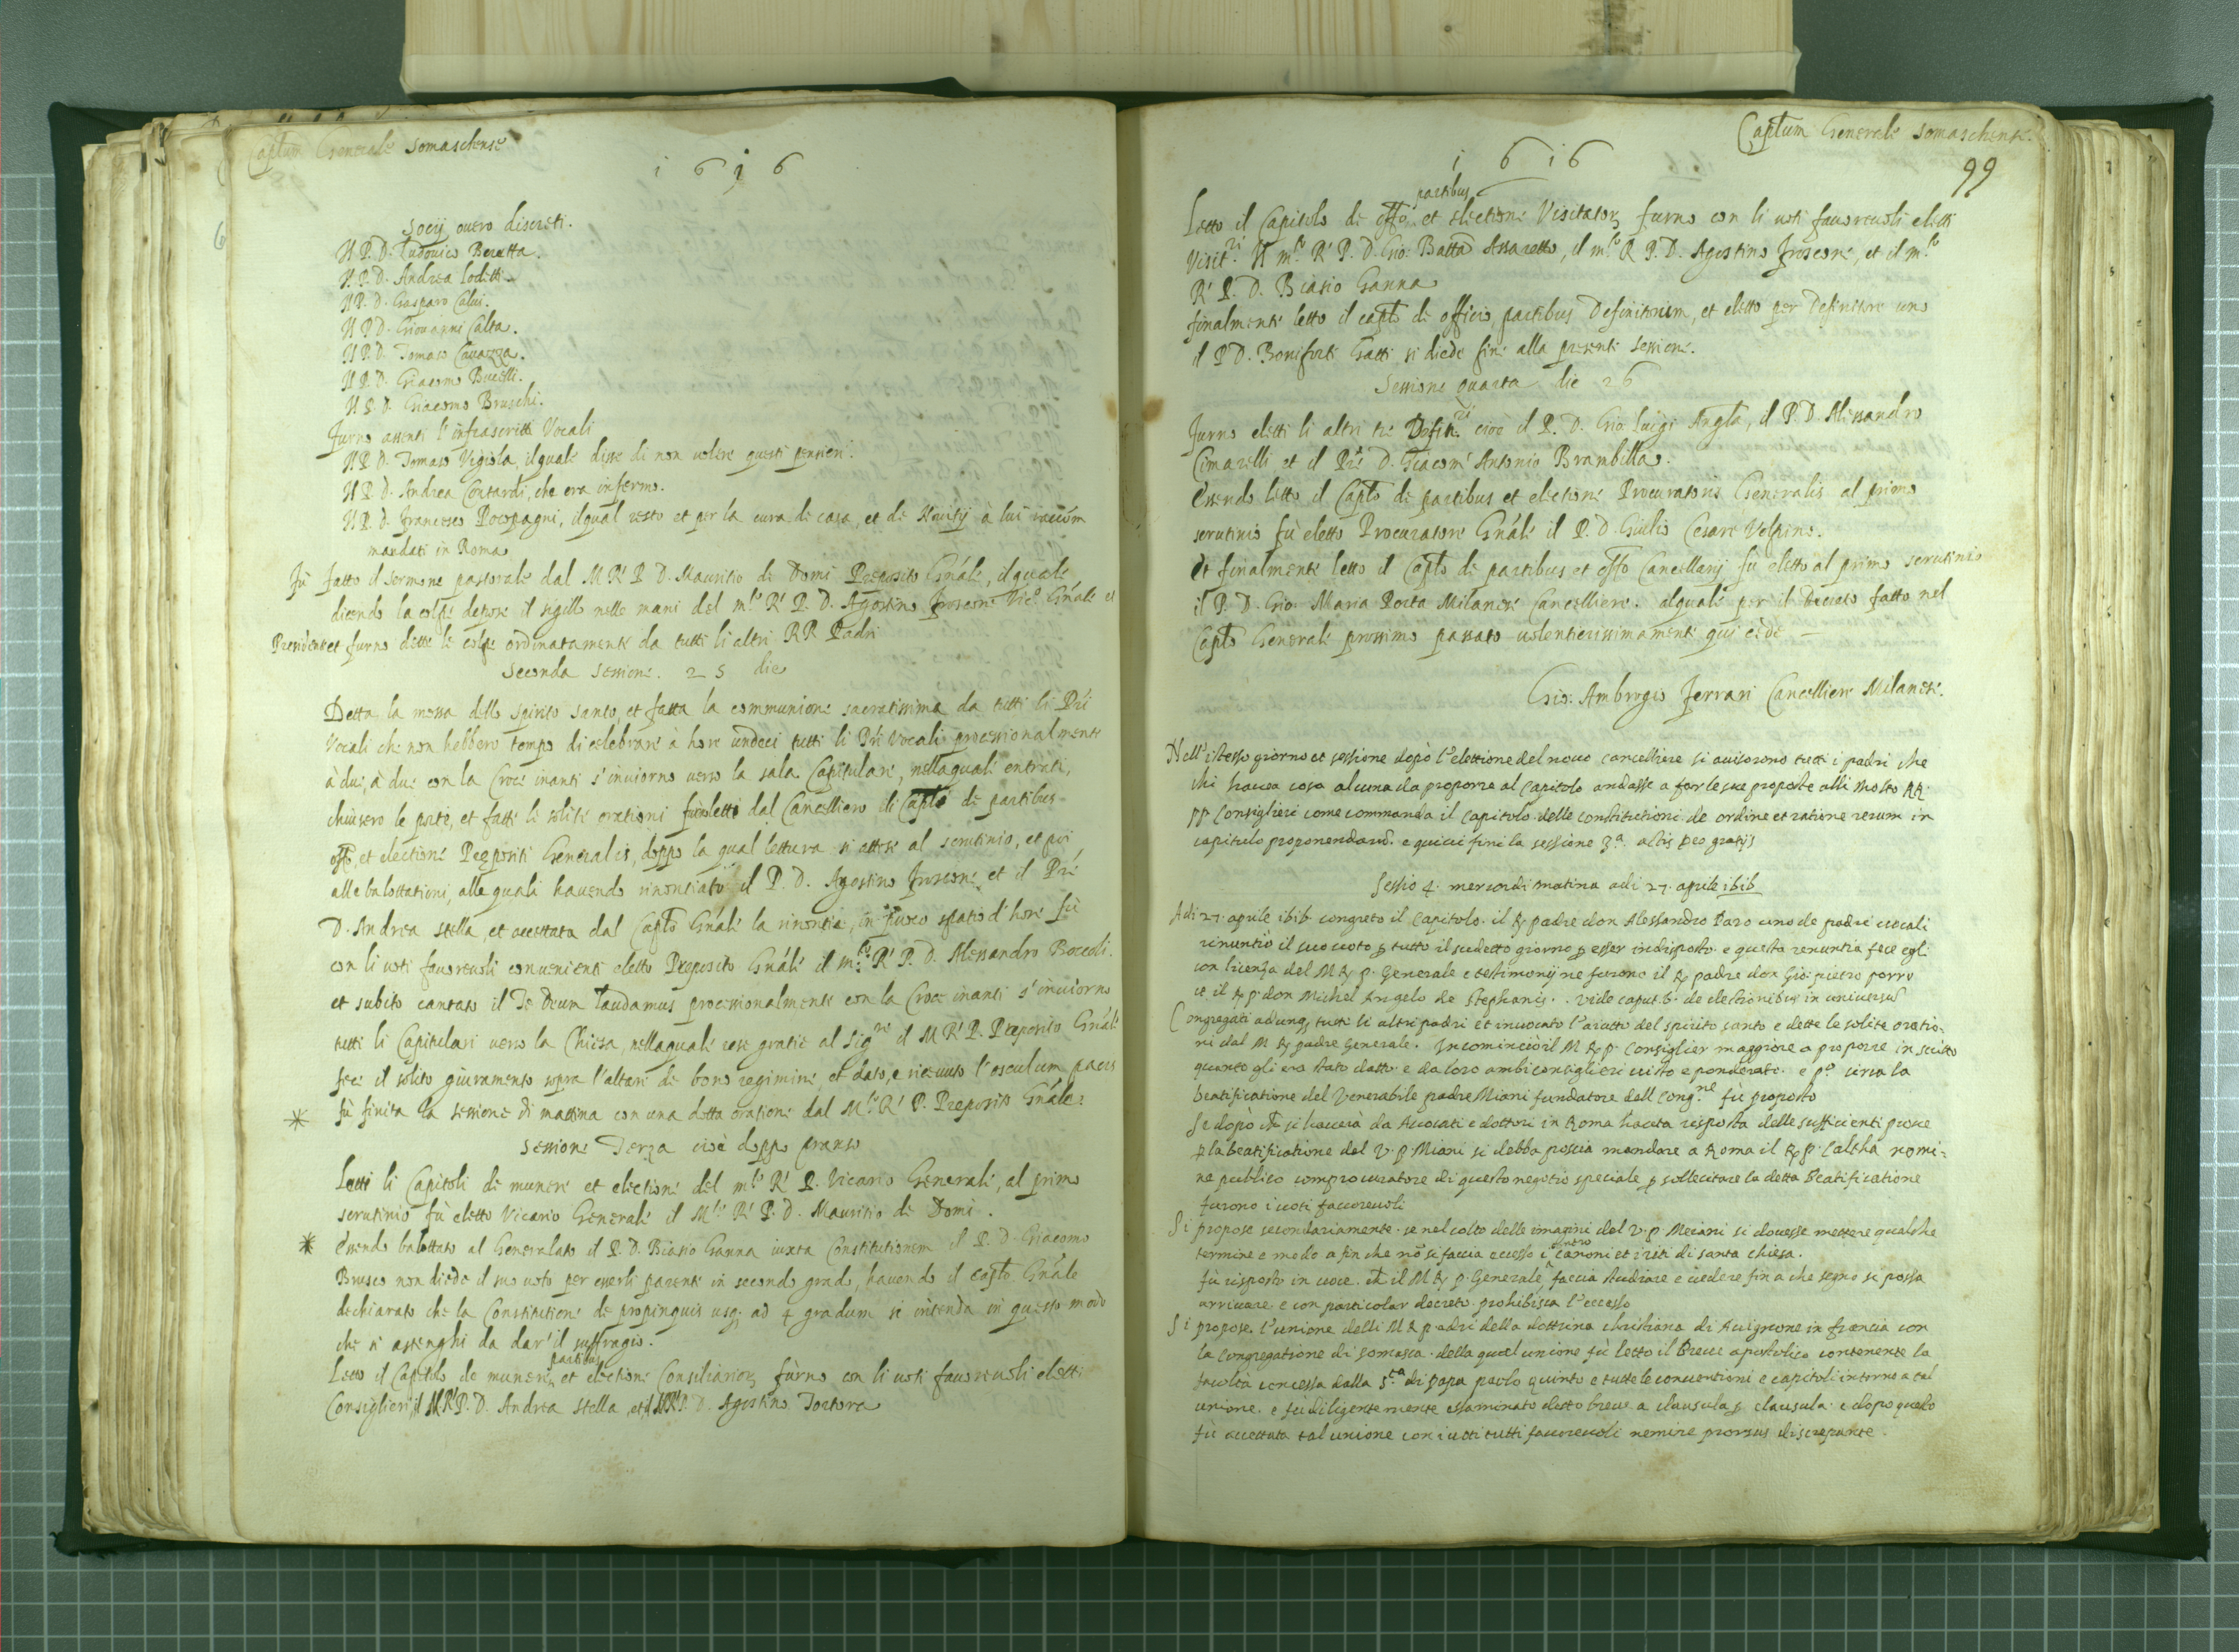 Captum Generale somaschense
1616
Socij ouero discreti.
Il P. D. Ludouico Beretta.
Il P. D. Andrea Loditti.
Il P. D. Gasparo Calui.
Il P. D. Giouanni Calta.
Il P. D. Tomaso Cauazza.
Il P. D. Giacomo Bucelli.
Il P. D. Giacomo Bruschi.
furno assenti l'infrascritti Vocali
Il P. D. Tomaso Vigiola, il quale disse di non uolere questi pensieri.
Il P. D. Andrea Contardi, che era infermo.
Il P. D. Francesco Pocopagni, il qual resto et per la cura di casa, et de Nouitij à lui raccom̃
mandati in Roma
fù fatto il sermone pastorale dal M R P D. Mauritio de Domi Preposito Gñale, il quale
dicendo la colpa depose il sigillo nelle mani del m.to R. P. D. Agostino froscone Vic.o Gñale et
Presidente et furno dette le colpe ordinatamente da tutti li altri RR Padri
Seconda sessione. 25 die
Detta la messa dello spirito santo, et fatta la communione sacratissima da tutti li Pri
Vocali che non hebbero tempo di celebrare à hore undeci tutti li Pri Vocali processionalmente
à dui, à dui con la Croce inanti s'inuiorno uerso la sala Capitulare, nella quale entrati,
chiusero le porte, et fatte le solite orationi fu letto dal Cancelliero il Caplo de partibus
offo, et electione Prepositi Generalis, doppo la qual lettura si attese al scrutinio, et poi
alle balottationi, alle quali hauendo rinontiato il P. D. Agostino froscone et il Pre
D. Andrea Stella, et accettata dal Caplo Gñale la rinontia, in puoco spatio d'hore fù
con li uoti fauoreuoli conuenienti eletto Preposito Gñale il m.to R. P. D. Alessandro Boccoli.
et subito cantato il Te Deum laudamus processionalmente con la Croce inanti s'inuiorno
tutti li Capitulari uerso la Chiesa, nella quale rese gratie al Sig.re il M R P. Preposito Gñale
fece il solito giuramento sopra l'altare de bono regimine, et dato, e riceuuto l'osculum pacis
* fù finita la sessione di mattina con una dotta oratione dal M.to R. P. Preposito Gñale:
Sessione Terza cioè doppo pranso
Letti li Capitoli de munere et electione del m.to R. P. Vicario Generale, al primo
scrutinio fù eletto Vicario Generale il M.to R. P. D. Mauritio de Domi.
* Essendo balottato al Generalato il P. D. Biasio Ganna iuxta Constitutionem il P. D. Giacomo
Brusco non diede il suo uoto per esserli parente in secondo grado, hauendo il caplo Gñale
dechiarato che la Constitutione de propinquis usq; ad 4 gradum si intenda in questo modo
che si astenghi da dar' il suffragio.
partibus
Letto il Capitolo de munere, et electione Consiliarior, furno con li uoti fauoreuoli eletti
Consiglieri il M.R.P. D. Andrea Stella, et il M.R.P. D. Agostino Tortora
Captum Generale somaschense.
99
1616
partibus
Letto il Capitolo de offo, et electione Visitator, furno con li uoti fauoreuoli eletti
Visit.ri Il m.to R P. D. Gio: Batta Assaretto, il m.to R P. D. Agostino froscone, et il m.to
R. P. D. Biasio Ganna
finalmente letto il caplo de officio, partibus Definitorum, et eletto per Definitore uno
il P D. Boniforte Gatti si diede fine alla presente sessione.
Sessione quarta die 26
furno eletti li altri tre Defin.ri cioè il P. D. Gio Luigi Angta, il P. D. Alessandro
Cimarelli, et il Pre D. Giacom' Antonio Brambilla.
Essendo letto il Caplo de partibus et electione Procuratoris Generalis al primo
scrutinio fù eletto Procuratore Gñale il P. D. Giulio Cesare Volpino.
Et finalmente letto il Caplo de partibus et offo Cancellarij fù eletto al primo scrutinio
il P. D. Gio: Maria Porta Milanese Cancelliere. al quale per il Decreto fatto nel
Caplo Generale prossimo passato uolentierissimamente qui cede —
Gio: Ambrogio Ferrari Cancelliere Milanese.
Nell'istesso giorno et sessione dopò l'elettione del nouo cancelliere si auisorono tutti i padri che
chi hauea cosa alcuna da proporre al Capitolo andasse a far le sue proposte alli Molto RR.
pp Consiglieri come commanda il capitolo delle constitutioni de ordine et ratione rerum in
capitulo proponendarũ. e quiui finì la sessione 3.a altis Deo gratijs
Sessio 4. mercordi matina adi 27. aprile 1616
Adi 27. aprile 1616 congreto il Capitolo. il R padre don Alessandro Paro uno de padri uocali
rinuntiò il suo uoto p tutto il sudetto giorno p esser indisposto. e questa renuntia fece egli
con licenza del M R p. Generale e testimonij ne furono il R padre don Gio: pietro porro
et il R p. don Michel Angelo de Stephanis. vide caput 6. de electionibus in uniuersũ
Congregati adunq; tutti li altri padri et inuocato l'aiutto del spirito santo e dette le solite oratio-
ni dal M R padre Generale. Incominciò il M R p. Consiglier maggiore a proporre in scritto
quanto gli era stato datto e da loro ambi consiglieri uisto e ponderato. e p.o circa la
beatificatione del Venerabile padre Miani fundatore dell Cong.ne fù proposto
Se dopò che si hauerà da Auocati e dottori in Roma hauta risposta delle sufficienti proue
p la beatificatione del V. p Miani si debba poscia mandare a Roma il R p. Caltha nomi-
ne publico com procuratore di questo negotio speciale p sollecitare la detta Beatificatione
furono i uoti fauoreuoli
Si propose secondariamente. se nel colto delle imagini del V. p Meiani si douesse mettere qualche
contro
termine e modo a fin che nõ si faccia eccesso i canoni et i riti di santa chiesa.
fù risposto in uoce. che il M R p. Generale faccia studiare e uedere fin a che segno si possa
arriuare. e con particolar decreto prohibisca l'eccesso
Si propose. l'unione delli M R padri della dottrina christiana di Auignone in francia con
la Congregatione di somasca. della qual unione fù letto il Breue apostolico contenente la
facoltà concessa dalla S.ta di papa paolo quinto e tutte le conuentioni e capitoli intorno a tal
unione. e fù diligentemente essaminato detto breue a clausula p clausula. e dopo quello
fù accettata tal unione con i uoti tutti fauoreuoli nemine prorsus discrepante.